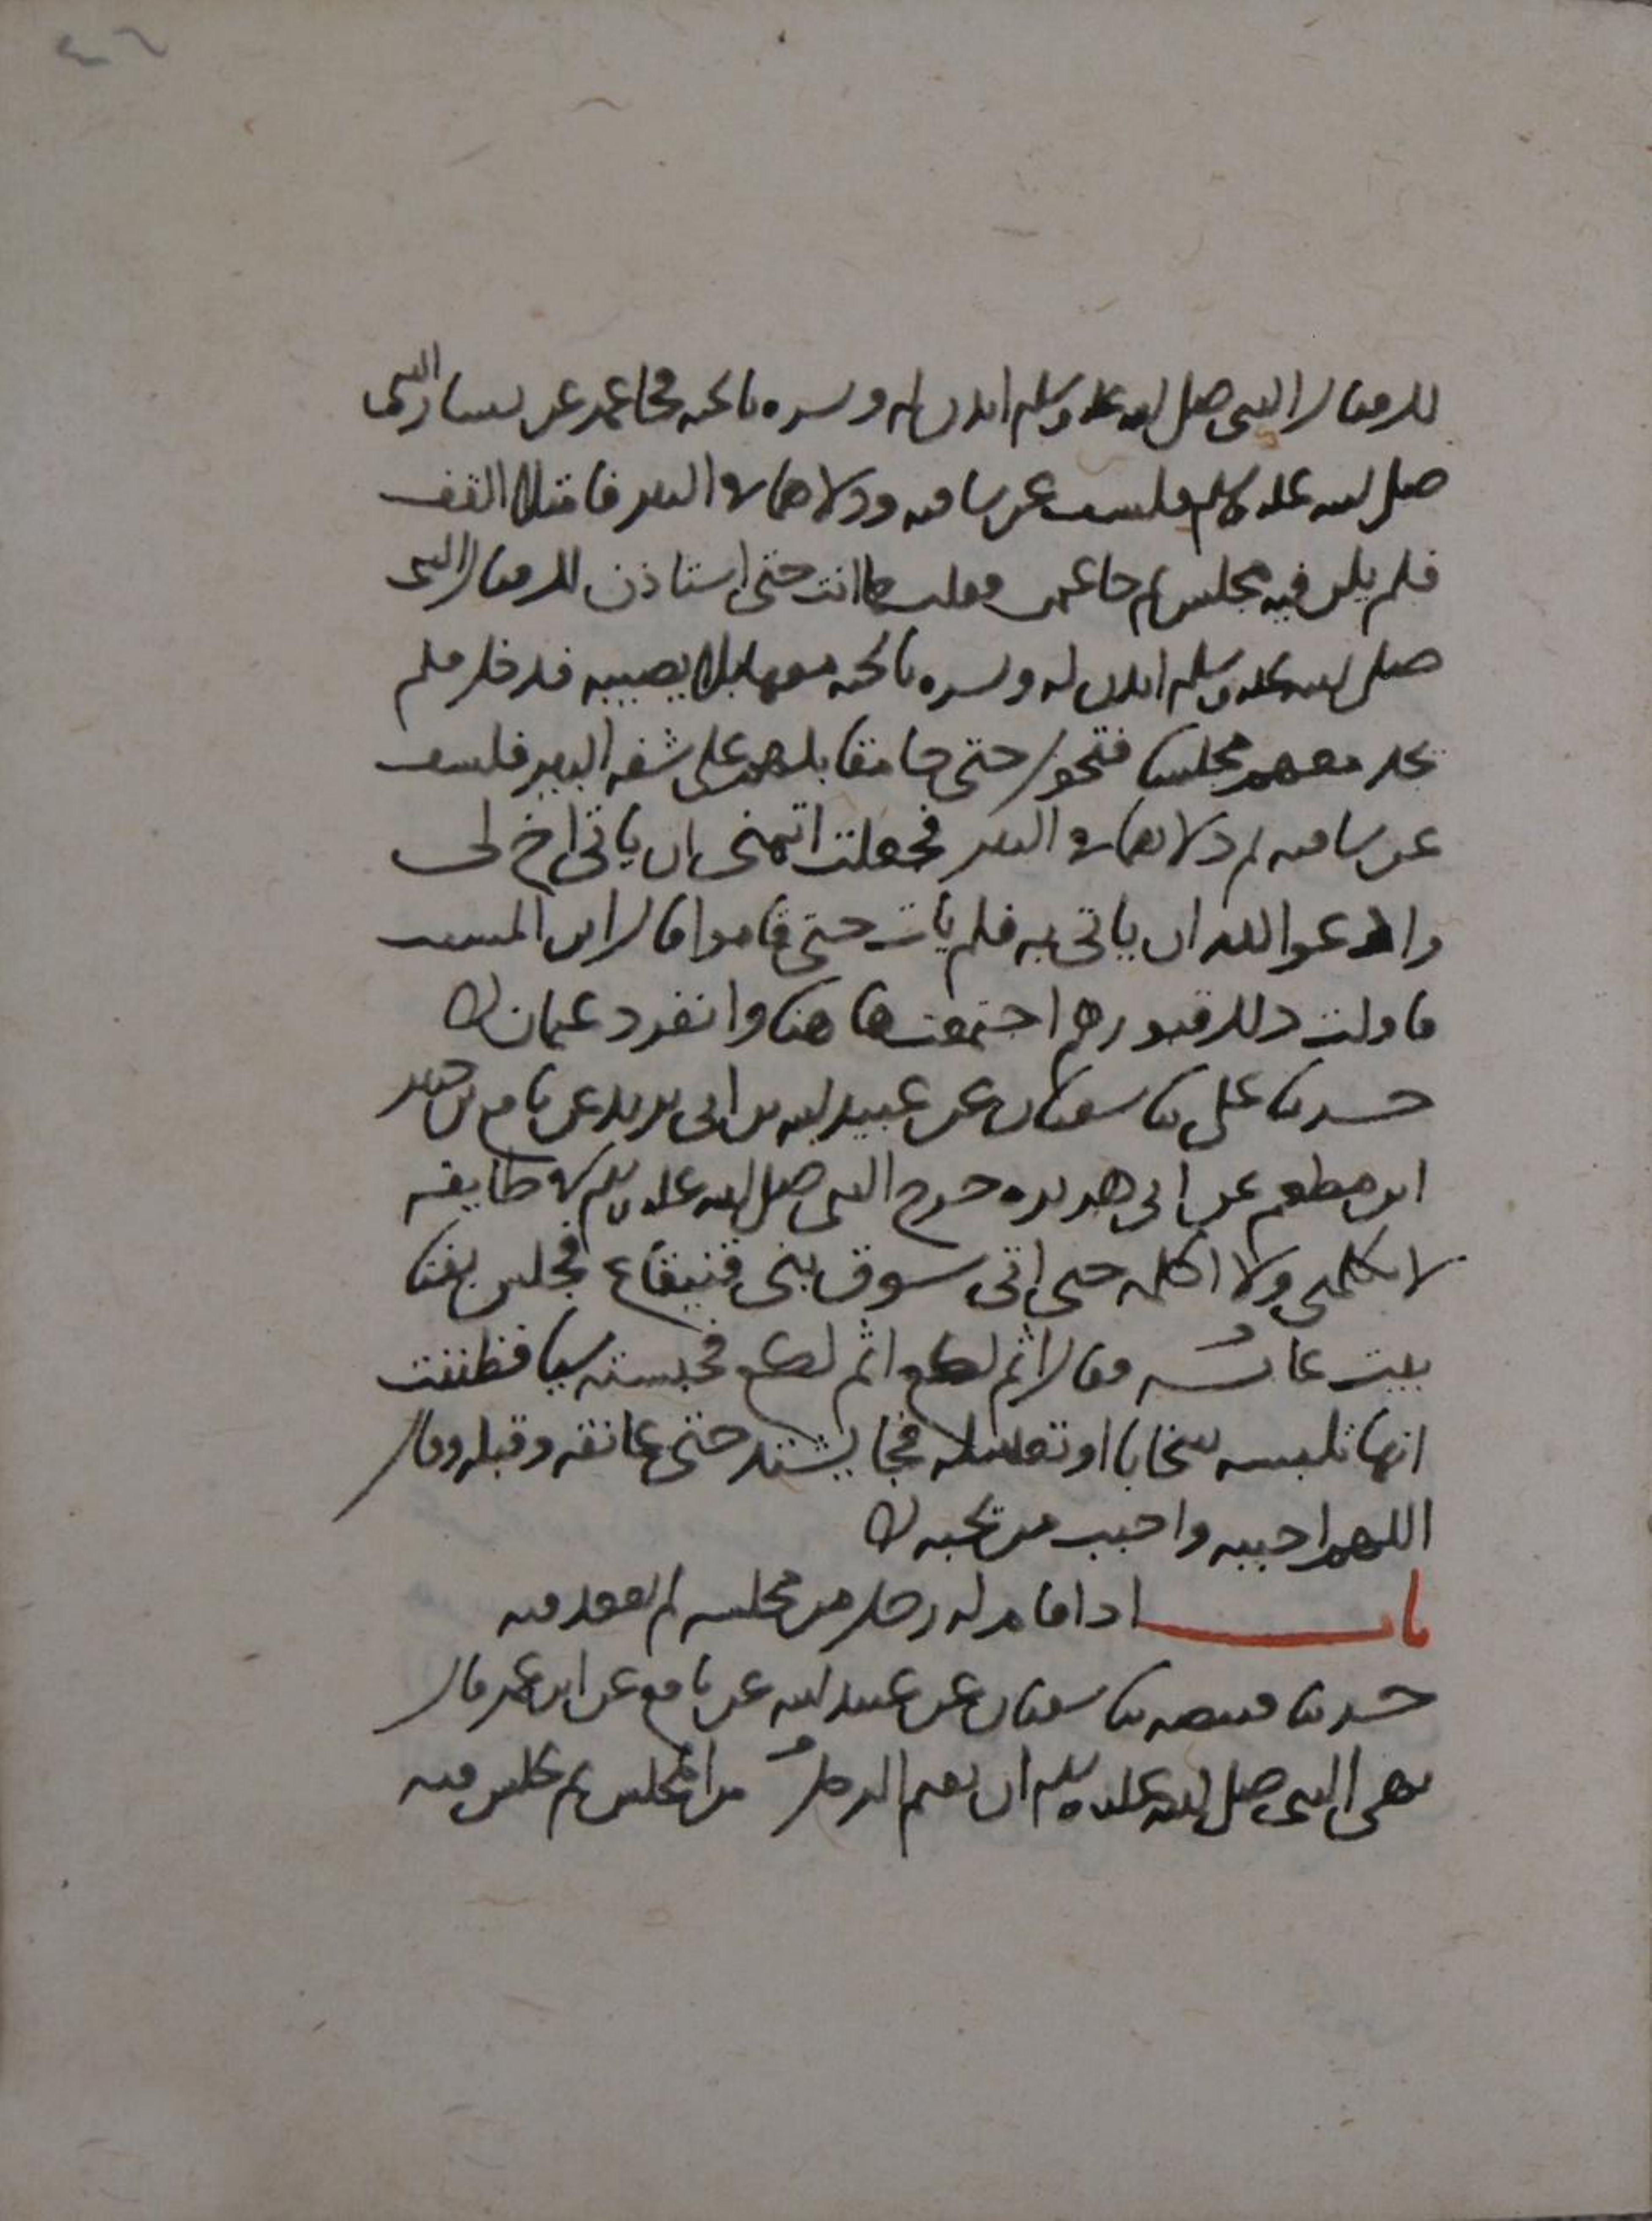 لك فقال النبي صلى الله عليه وسلم ائذن له وبشره بالجنة فجا عمر عن يسار النبي
صلى الله عليه وسلم فكشف عن ساقيه ودلاهما في البير فامتلا القف
فلم يكن فيه مجلس ثم جا عثمن فقلت كما انت حتى استاذن لك فقال النبي
صلى الله عليه وسلم ائذن له وبشره بالجنة معها بلا يصيبه فدخل فلم
يجد معهم مجلسا فتحول حتى جا مقابلهم على شفه البير فكشف
عن ساقيه ثم دلاهما في البير فجعلت اتمنى ان ياتي اخ لي
وادعوا الله ان ياتي به فلم يات حتى قاموا قال ابن المسيب
فاولت ذلك قبورهم اجتمعت هاهنا وانفرد عثمان
حدثنا علي ثنا سفيان عن عبيد الله بن ابي يزيد عن نافع بن جبير
ابن مطعم عن ابي هريره خرج النبي صلى الله عليه وسلم في طايفه
لا يكلمني ولا اكلمه حتى اتى سوق بني قينقاع فجلس بفنا
بيت عائشه فقال اثم لكع اثم لكع فحبسته شيا فظننت
انها تلبسه سخابا او تغسله فجا يشتد حتى عانقه وقبله وقال
اللهم احببه واحبب من يحبه
باب اذا قام له رجل من مجلسه لم يقعد فيه
حدثنا قبيصه ثنا سفيان عن عبيد الله عن نافع عن ابن عمر قال
نهى النبي صلى الله عليه وسلم ان يقيم الرجل من المجلس ثم يجلس فيه